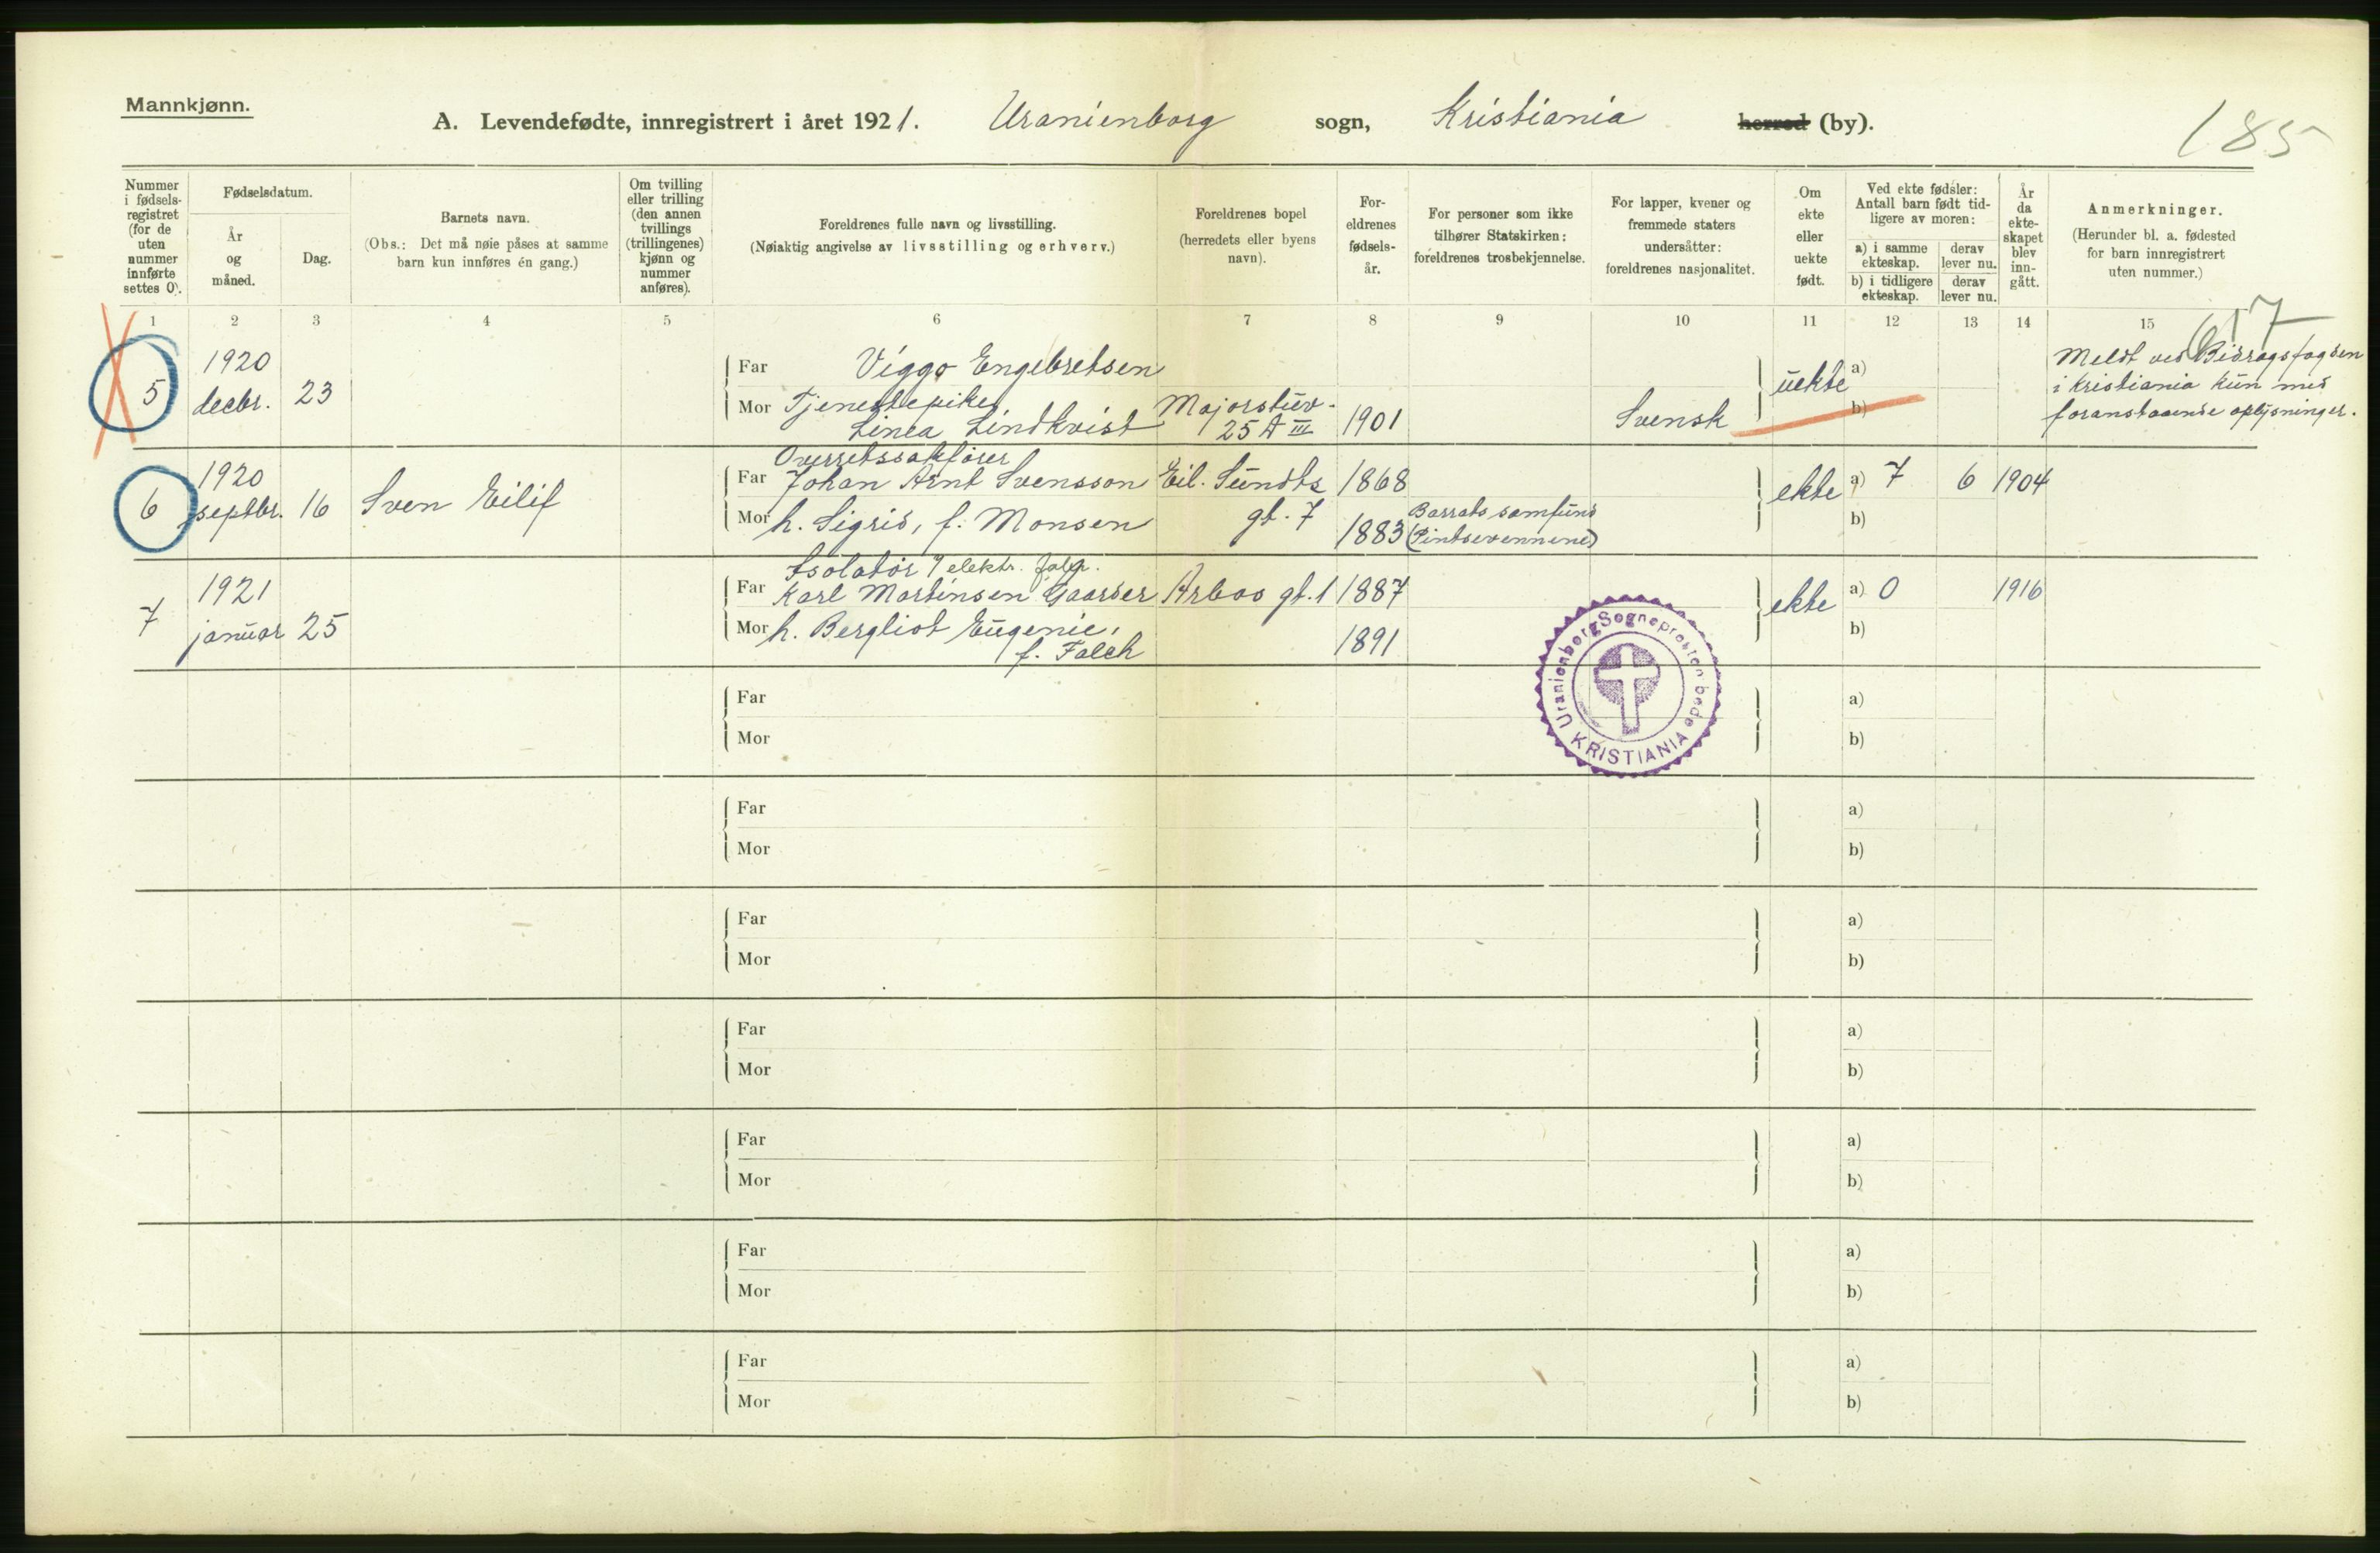 Mannkjønn.
A. Levendefødte, innregistrert i året 1921. Uranienborg sogn, Kristiania herred (by).
185
Nummer i fødsels-registret (for de uten nummer innførte settes 0).
Fødselsdatum.
År og måned.
Dag.
Barnets navn.
(Obs.: Det må nøie påses at samme barn kun innføres én gang.)
Om tvilling eller trilling (den annen tvillings (trillingenes) kjønn og nummer anføres).
Foreldrenes fulle navn og livsstilling.
(Nøiaktig angivelse av livsstilling og erhverv.)
Foreldrenes bopel (herredets eller byens navn).
For-eldrenes fødsels-år.
For personer som ikke tilhører Statskirken: foreldrenes trosbekjennelse.
For lapper, kvener og fremmede staters undersåtter: foreldrenes nasjonalitet.
Om ekte eller uekte født.
Ved ekte fødsler: Antall barn født tid-ligere av moren:
a) i samme ekteskap.
derav lever nu.
b) i tidligere ekteskap.
derav lever nu.
År da ekte-skapet blev inn-gått.
Anmerkninger.
(Herunder bl. a. fødested for barn innregistrert uten nummer.)
1 2 3 4 5 6 7 8 9 10 11 12 13 14 15
617
5 1920 decbr. 23
Far Viggo Engebretsen
Mor Tjenestepike
Linea Lindkvist
Majorstuv.
25 A III
1901
Svensk
uekte
a)
b)
Meldt ved Bidragsfogden
i Kristiania kun med
foranstaaende oplysninger.
6 1920 septbr. 16 Sven Eilif
Overretssakfører
Far Johan Arnt Svensson
Eil. Sundts
1868
ekte a) 7 6 1904
Mor h. Sigrid, f. Monsen
gt. 7
1883
Barrats samfund
(Pintsevennene)
b)
7 1921 januar 25
Isolatør v elektr. 
Far Karl Martinsen Gaarder
Arbos gt. 1
1887
ekte a) 0 1916
Mor h. Bergliot Eugenie,
f. Falch
1891
b)
Uranienborg Sogneprestembede
KRISTIANIA
Far a)
Mor b)
Far a)
Mor b)
Far a)
Mor b)
Far a)
Mor b)
Far a)
Mor b)
Far a)
Mor b)
Far a)
Mor b)